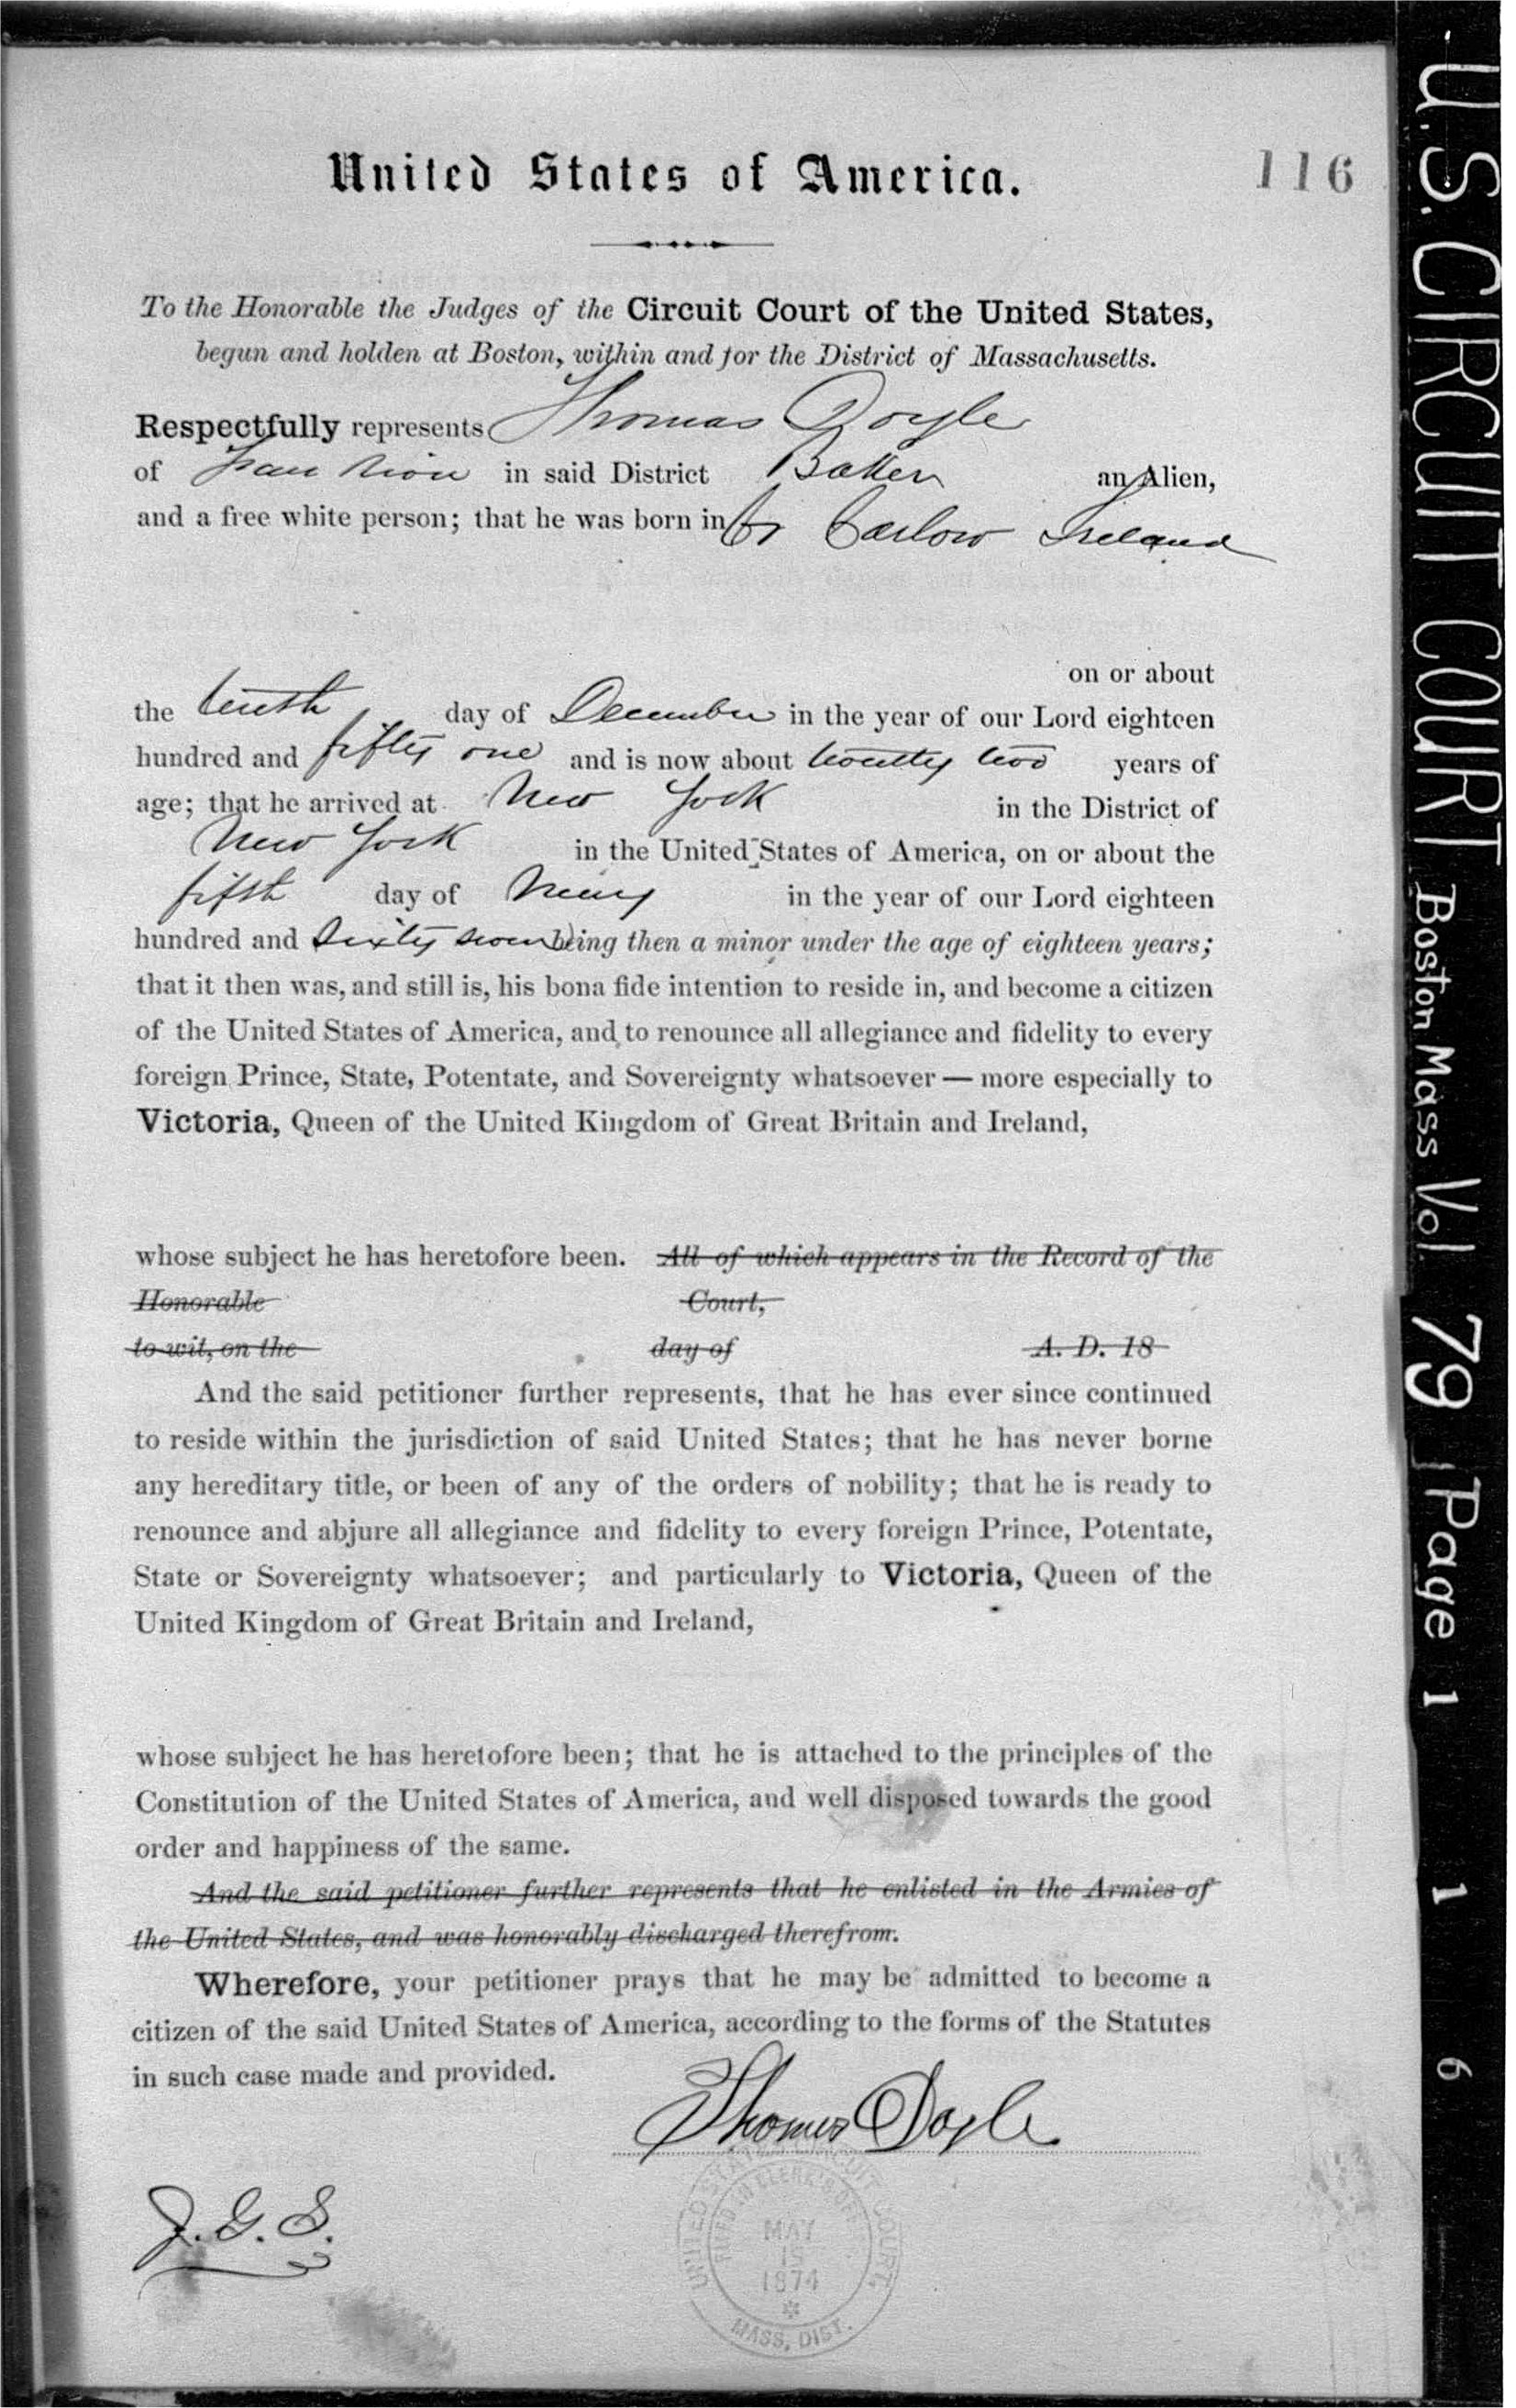 United States of America.
116
To the Honorable the Judges of the Circuit Court of the United States,
begun and holden at Boston, within and for the District of Massachusetts.
Respectfully represents Thomas Doyle
of in said District Baker an Alien,
and a free white person; that he was born in Co Carlow Ireland
on or about
the tenth day of December in the year of our Lord eighteen
hundred and fifty one and is now about twenty two years of
age; that he arrived at New York in the District of
New York in the United States of America, on or about the
fifth day of May in the year of our Lord eighteen
hundred and Sixty seven being then a minor under the age of eighteen years;
that it then was, and still is, his bona fide intention to reside in, and become a citizen
of the United States of America, and to renounce all allegiance and fidelity to every
foreign Prince, State, Potentate, and Sovereignty whatsoever — more especially to
Victoria, Queen of the United Kingdom of Great Britain and Ireland,
whose subject he has heretofore been. All of which appears in the Record of the
Honorable Court,
to wit, on the day of A. D. 18
And the said petitioner further represents, that he has ever since continued
to reside within the jurisdiction of said United States; that he has never borne
any hereditary title, or been of any of the orders of nobility; that he is ready to
renounce and abjure all allegiance and fidelity to every foreign Prince, Potentate,
State or Sovereignty whatsoever; and particularly to Victoria, Queen of the
United Kingdom of Great Britain and Ireland,
whose subject he has heretofore been; that he is attached to the principles of the
Constitution of the United States of America, and well disposed towards the good
order and happiness of the same.
And the said petitioner further represents that he enlisted in the Armies of
the United States, and was honorably discharged therefrom.
Wherefore, your petitioner prays that he may be admitted to become a
citizen of the said United States of America, according to the forms of the Statutes
in such case made and provided.
Thomas Doyle
J. G. S.
UNITED STATES CIRCUIT COURT,
FILED IN CLERK'S OFF
MAY
15
1874
MASS. DIST.
U.S. CIRCUIT COURT Boston Mass Vol. 79 Page 1 1 1 6